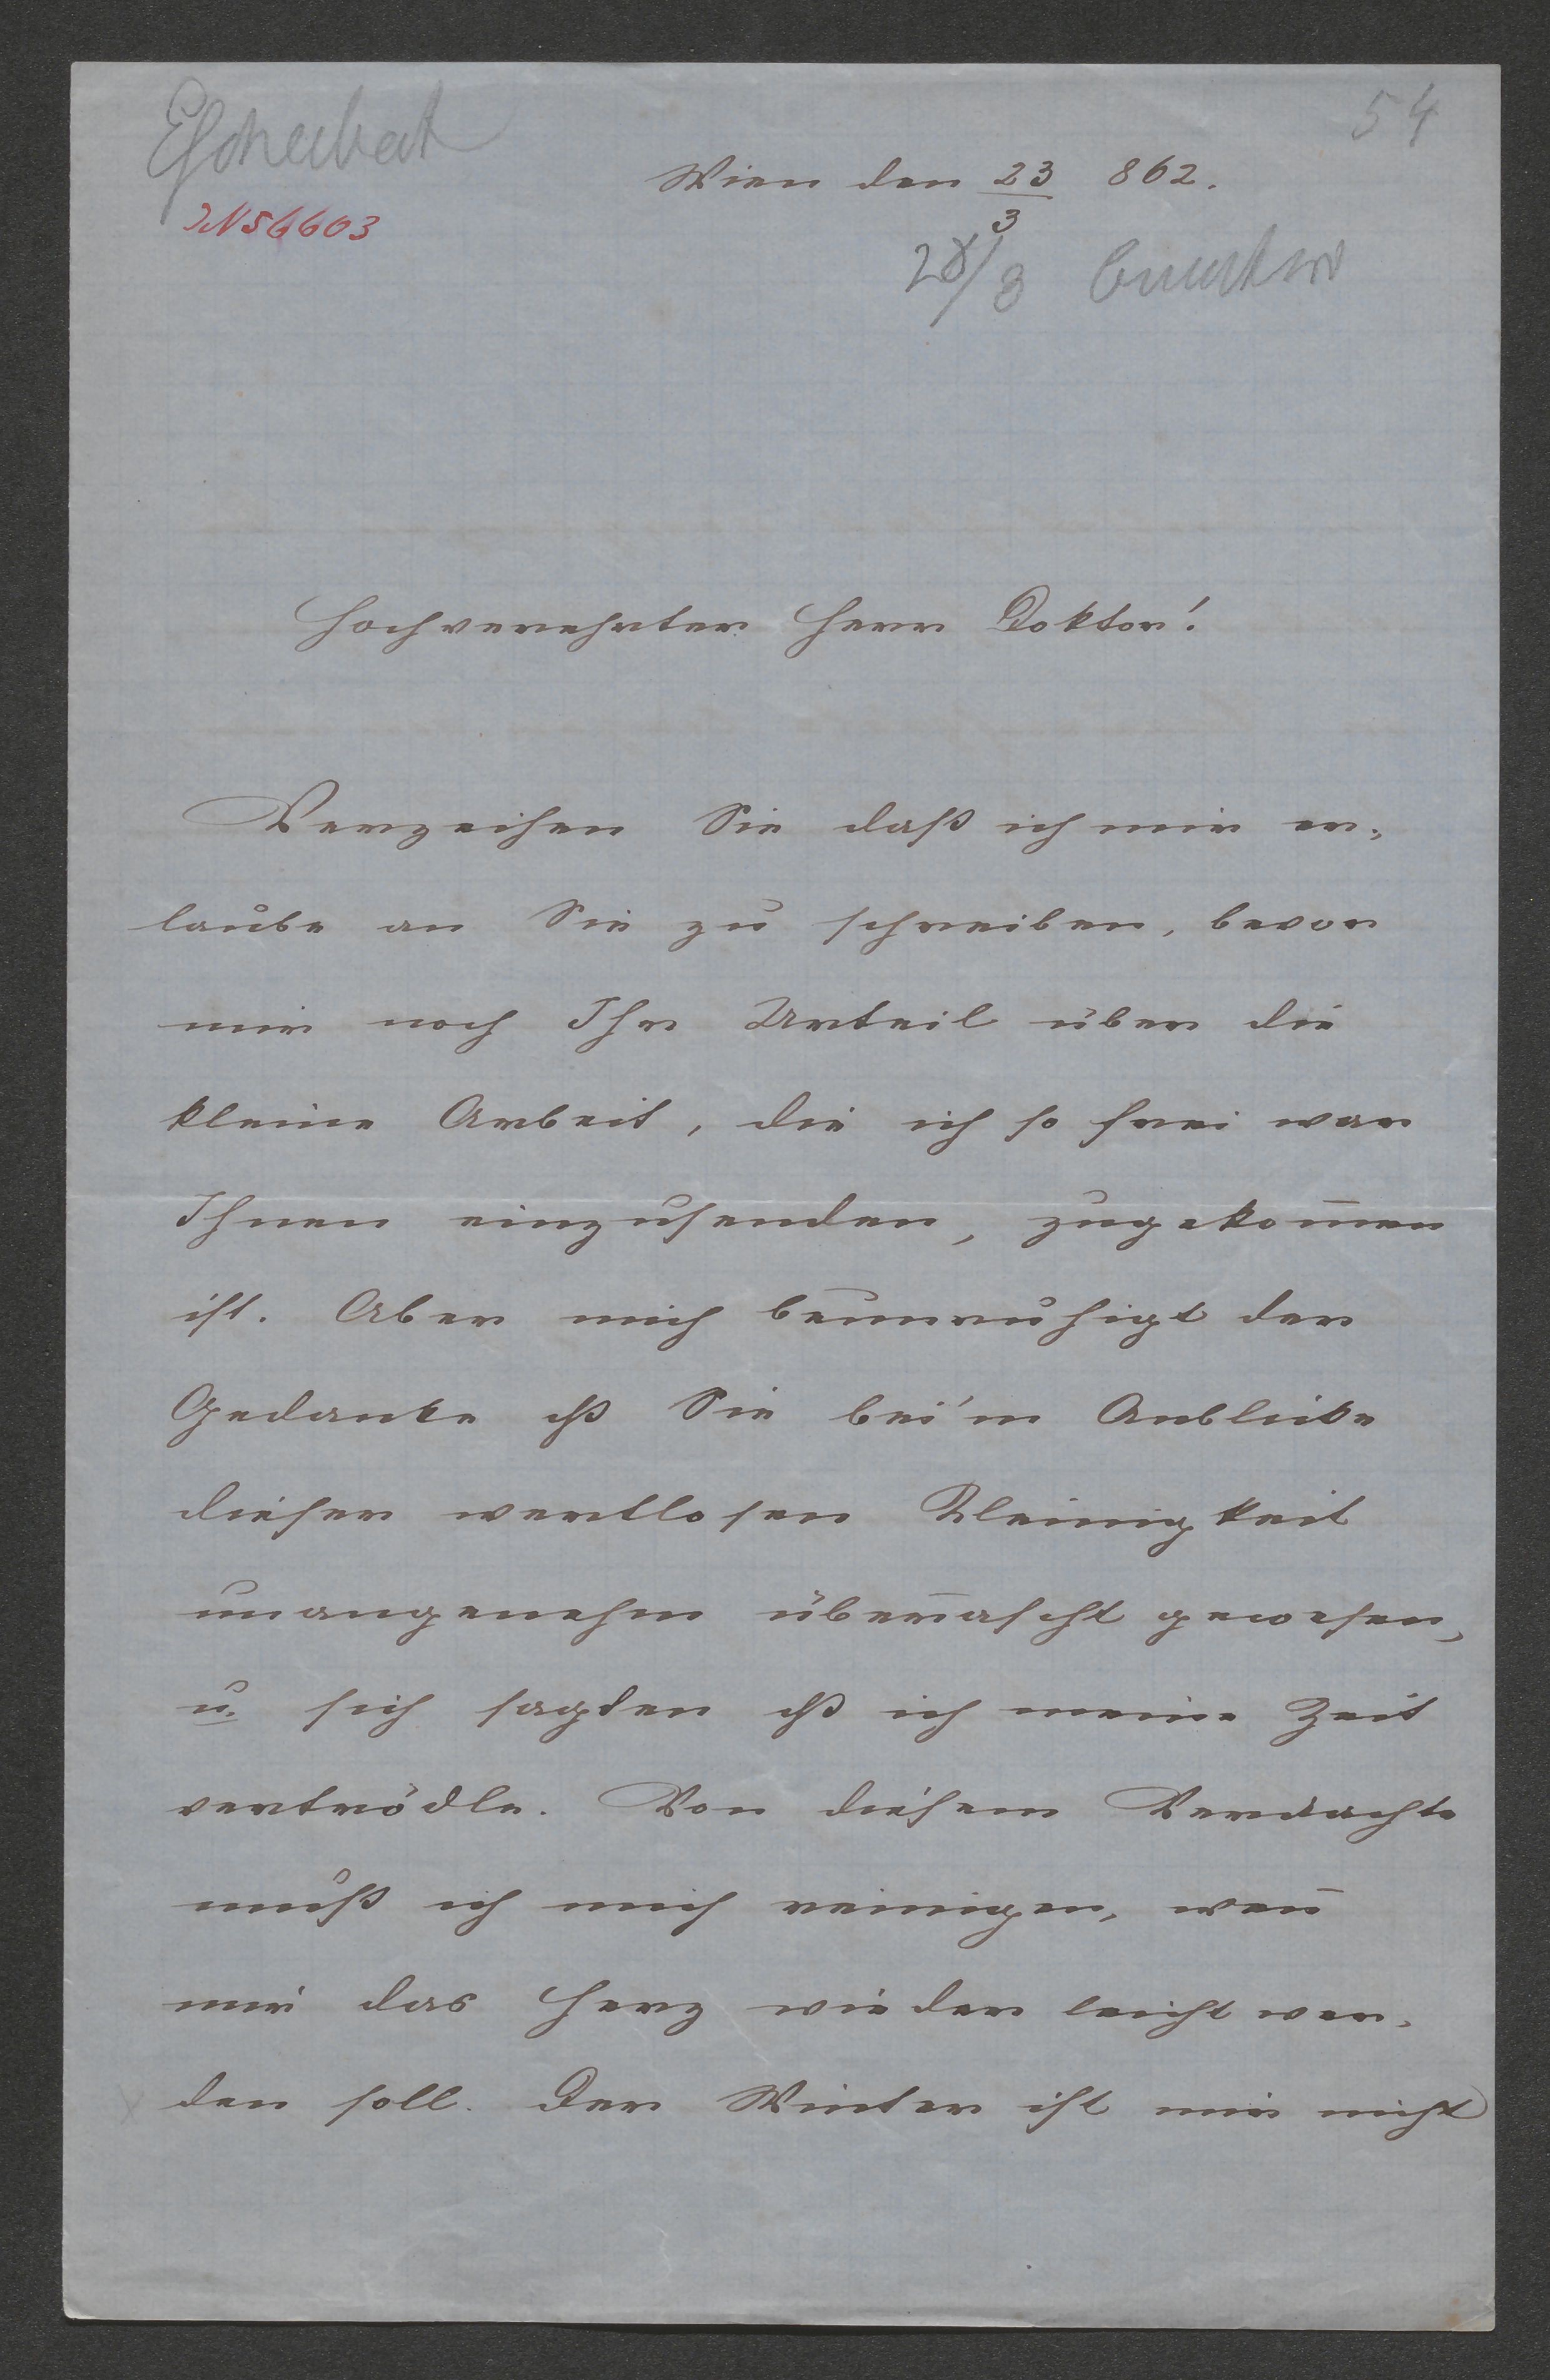 54
Wien den 23/3 862.
IN 56603
28/3
Hochverehrter Herr Doktor!
Verzeihen Sie daß ich mir er-
laube an Sie zu schreiben, bevor
mir noch Ihr Urteil über die
kleine Arbeit, die ich so frei war
Ihnen einzusenden, zugekom̄en
ist. Aber mich beunruhigt der
Gedanke dß Sie bei'm Anblicke
dieser wertlosen Kleinigkeit
unangenehm über̄ascht gewesen,
u. sich sagten dß ich meine Zeit
vertrödle. Von diesem Verdachte
muß ich mich reinigen, wen̄
mir das Herz wieder leicht wer-
den soll. Der Winter ist mir nicht